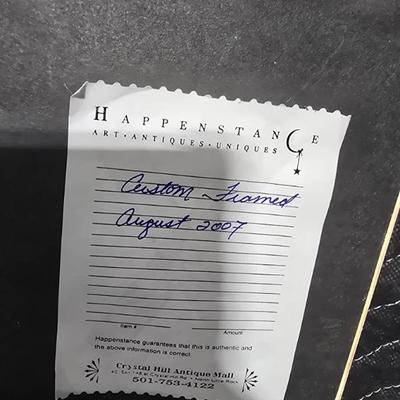 HAPPENSTANCE
ART • ANTIQUES • UNIQUES
Custom Framed
August 2007
Item # Amount
Happenstance guarantees that this is authentic and
the above information is correct.
Crystal Hill Antique Mall
North Little Rock
501-753-4122